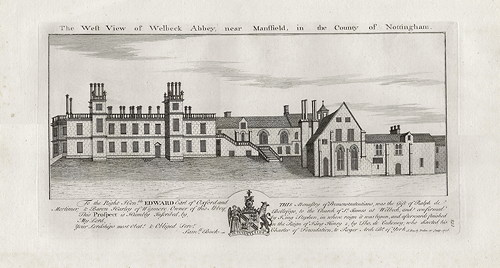 The West View of Welbeck Abbey, near Mansfield, in the County of Nottingham.
To the Right Hon.ble EDWARD Earl of Oxford and
Mortimer & Baron Harley of Wigmore Owner of this Abbey
This Prospect is Humbly Inscribed by,
My Lord,
Your Lordships most Obed.t & Obliged Serv.t
Sam.l Buck
THIS Monastry of Premonstratensians, was the Gift of Ralph de
Belleforge, to the Church of S.t James at Welbeck, and confirmed
by King Stephen, in whose reign it was begun, and afterwards finished
in the Reign of King Henry 2. by the. de Cuckeney, who directed his
Charter of Foundation, to Roger Arch Bp. of York